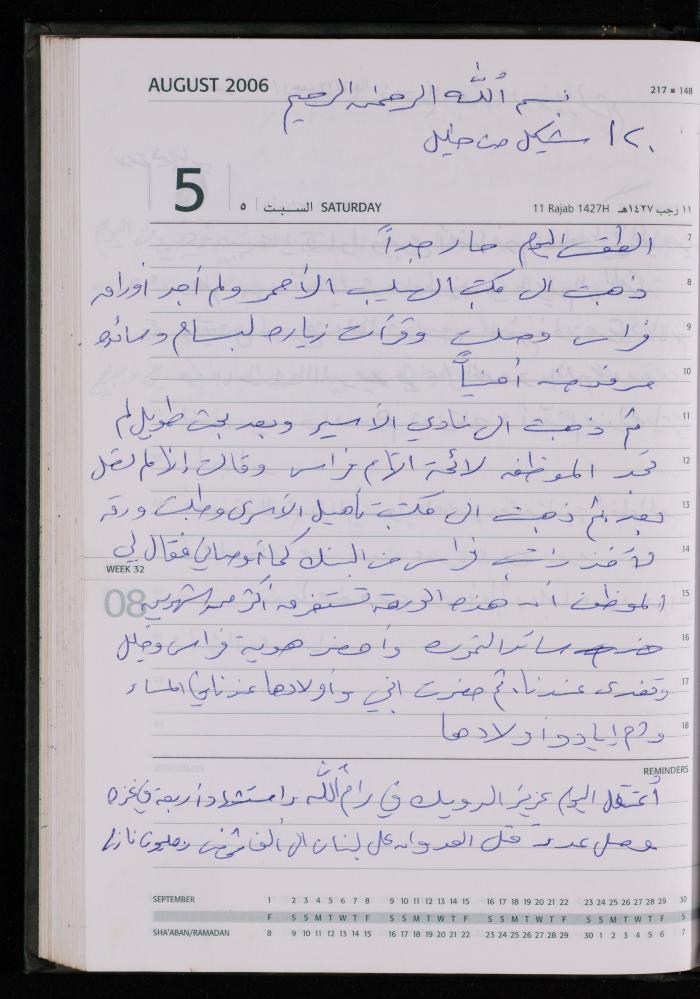 AUGUST 2006
217 ■ 148
بسم الله الرحمن الرحيم
١٢٠ شيكل من خليل
5
السبت ٥ SATURDAY
11 Rajab 1427H ١١ رجب ١٤٢٧هـ
7 الطقس اليوم حار جداً
8 ذهبت الى مكتب الصليب الأحمر ولم أجد أوراق
9 فراس وصلت وقرأت زيارة لبسام وسائد
10 مرفوضة أمنياً
11 ثم ذهبت الى نادي الأسير وبعد بحث طويل لم
12 تجد الموظفه لائحة اتهام فراس وقالت إنها لم تصل
13 بعد ثم ذهبت الى مكتب تأهيل الأسرى وطلبت ورقة
14 لأخذ راتب فراس من البنك كما أوصاني فقال لي
WEEK 32
08
15 الموظف أن هذه الورقة تستغرق أكثر من شهرين
16 سائد وأحضر هوية فراس وخليل
17 وتغدى عندنا ثم حضرت وأولادها عندنا في المساء
18 وثم إياد وأولادها
REMINDERS
أعتقل اليوم عزيز الدويك في رام الله واستشهد أربعة في غزة
وصل عدد قتلى العدوان على لبنان الى ألف شخص ومليون نازح
SEPTEMBER 1 2 3 4 5 6 7 8 9 10 11 12 13 14 15 16 17 18 19 20 21 22 23 24 25 26 27 28 29 30
F S S M T W T F S S M T W T F S S M T W T F S S M T W T F S
SHA'ABAN/RAMADAN 8 9 10 11 12 13 14 15 16 17 18 19 20 21 22 23 24 25 26 27 28 29 30 1 2 3 4 5 6 7